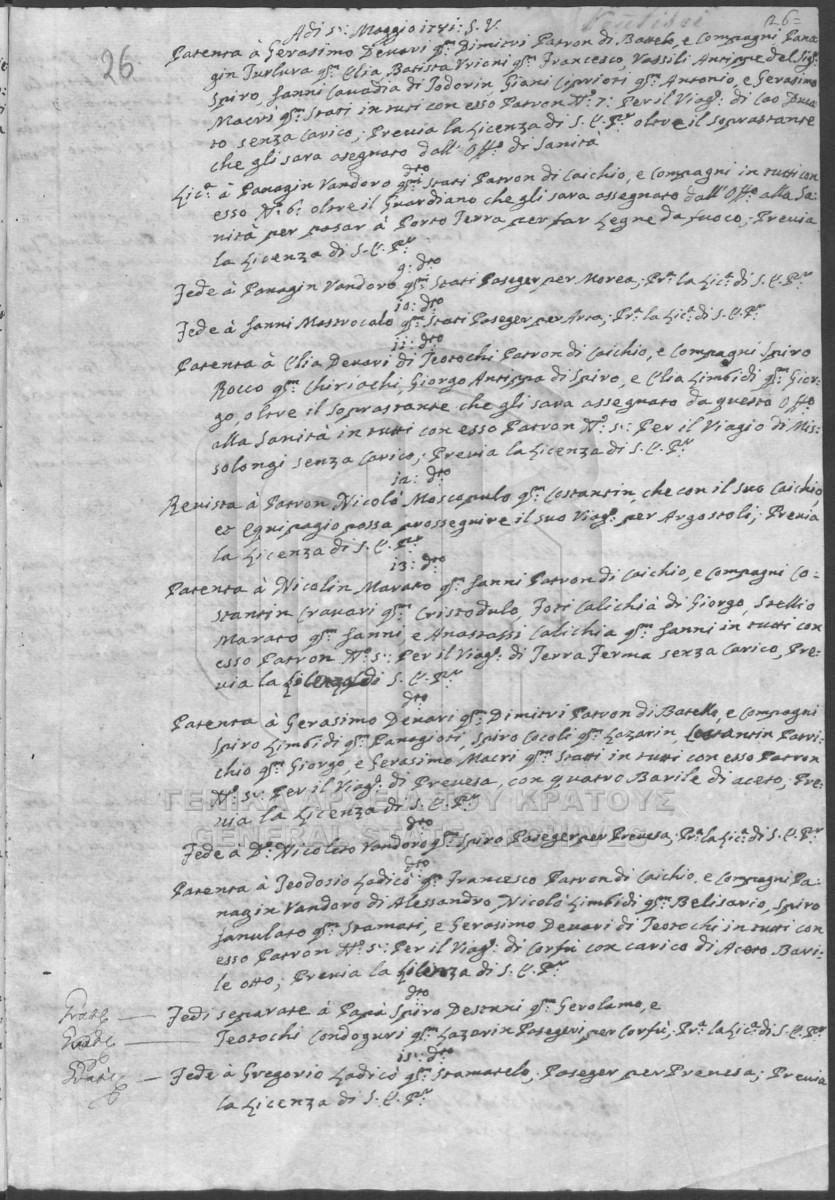 Ventisei
26=
26
Adi 5: Maggio 1781: S.V.
Patenta à Gerasimo Devari qm Dimitri Patron di Battelo, e Compagni Pana-
gin Turlura qm Elia Batista Vrioni qm Francesco, Vassili Antippa del Sigr
Spiro, Janni Cavadia di Todorin, Giani Ciprioti qm Antonio, e Gerasimo
Macri qm Stati in tuti con esso Patron No 7: Per il Viago di Cao Duca-
to senza Carico; Previa la Licenza di S.E.Pr oltre il soprastante
che gli sara asegnato dall' Offo di Sanità
dto
Lica à Panagin Vandoro qm Stati Patron di Caichio, e Compagni in tutti con
esso No 6: oltre il Guardiano che gli sara assegnato dall' Offo alla Sa-
nità per pasar à Porto Terra per far Legne da fuoco; Previa
la Licenza di S.E.Pr
9: dto
Fede à Panagin Vandoro qm Stati Paseger per Morea; Pra la Lica di S.E.Pr
10: dto
Fede à Janni Mastrocalo qm Stati Paseger per Arta; Pra la Lica di S.E.Pr
11: dto
Patenta à Elia Devari di Teotochi Patron di Caichio, e Compagni Spiro
Rocco qm Chiriachi, Giorgo Antippa di Spiro, e Elia Limbidi qm Gior-
go, oltre il soprastante che gli sara assegnato da questo Offo
alla Sanità in tutti con esso Patron No 5: Per il Viagio di Mis-
solongi senza Carico; Previa la Licenza di S.E.Pr
12: dto
Revista à Patron Nicolò Moscopulo qm Costantin, che con il suo Caichio,
et Equipagio possa prosseguire il suo Viago per Argostoli; Previa
la Licenza di S.E.Pr
13: dto
Patenta à Nicolin Marato qm Janni Patron di Caichio, e Compagni Co-
stantin Cravari qm Cristodulo, Foti Calichià di Giorgo, Stellio
Marato qm Janni e Anastassi Calichia qm Janni in tutti con
esso Patron No 5: Per il Viago di Terra Ferma senza Carico, Pre-
via la Licenza di S.E.Pr
dto
Patenta à Gerasimo Devari qm Dimitri Patron di Batello, e Compagni
Spiro Limbidi qm Panagioti, Spiro Cocoli qm Lazarin, Costantin Patri-
chio qm Giorgo, e Gerasimo Macri qm Statti in tutti con esso Patron
No 5: Per il Viago di Prevesa, con quatro Barile di aceto, Pre-
via la Licenza di S.E.Pr
ΓΕΝΙΚΑ ΑΡΧΕΙΑ ΤΟΥ ΚΡΑΤΟΥΣ
GENERAL STATE ARCHIVES
dto
Fede à Do Nicoleto Vandoro qm Spiro Paseger per Prevesa, Pra la Lica di S.E.Pr
dto
Patenta à Teodosio Ladicò qm Francesco Patron di Caichio, e Compagni Pa-
nagin Vandoro di Alessandro, Nicolò Limbidi qm Belisario, Spiro
Janulato qm Stamati, e Gerasimo Devari di Teotochi in tuti con
esso Patron No 5: Per il Viago di Corfù con carico di Aceto Bari-
le otto; Previa la Licenza di S.E.Pr
dto
Gratis — Fedi separate à Papà Spiro Destuni qm Gerolamo, e
Gratis — Teotochi Condoguri qm Lazarin Paseger per Corfù; Pra la Lica di S.E.Pr
15: dto
Gratis — Fede à Gregorio Ladicò qm Stamatelo, Paseger per Prevesa; Previa
la Licenza di S.E.Pr